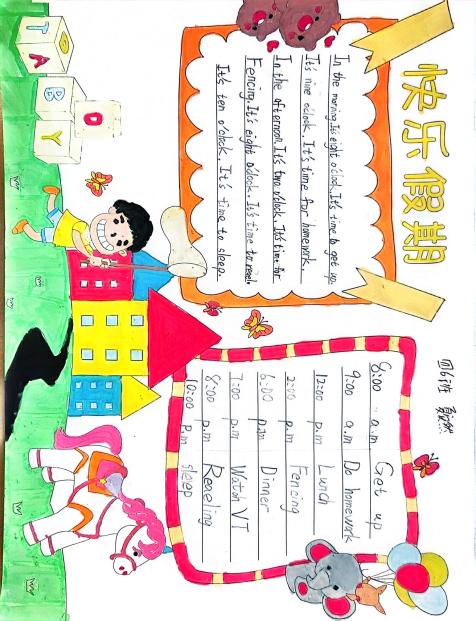 快乐假期
In the morning. It's eight o'clock. It's time to get up.
It's nine o'clock. It's time for homework.
In the afternoon. It's two o'clock. It's time for
Fencing. It's eight o'clock. It's time to
It's ten o'clock. It's time to sleep.
8:00 a.m Get up
9:00 a.m Do homework
12:00 p.m Lunch
2:00 p.m Fencing
6:00 p.m Dinner
7:00 p.m Watch VT
8:00 p.m Reneling
10:00 p.m sleep
T
A
B
Y
D